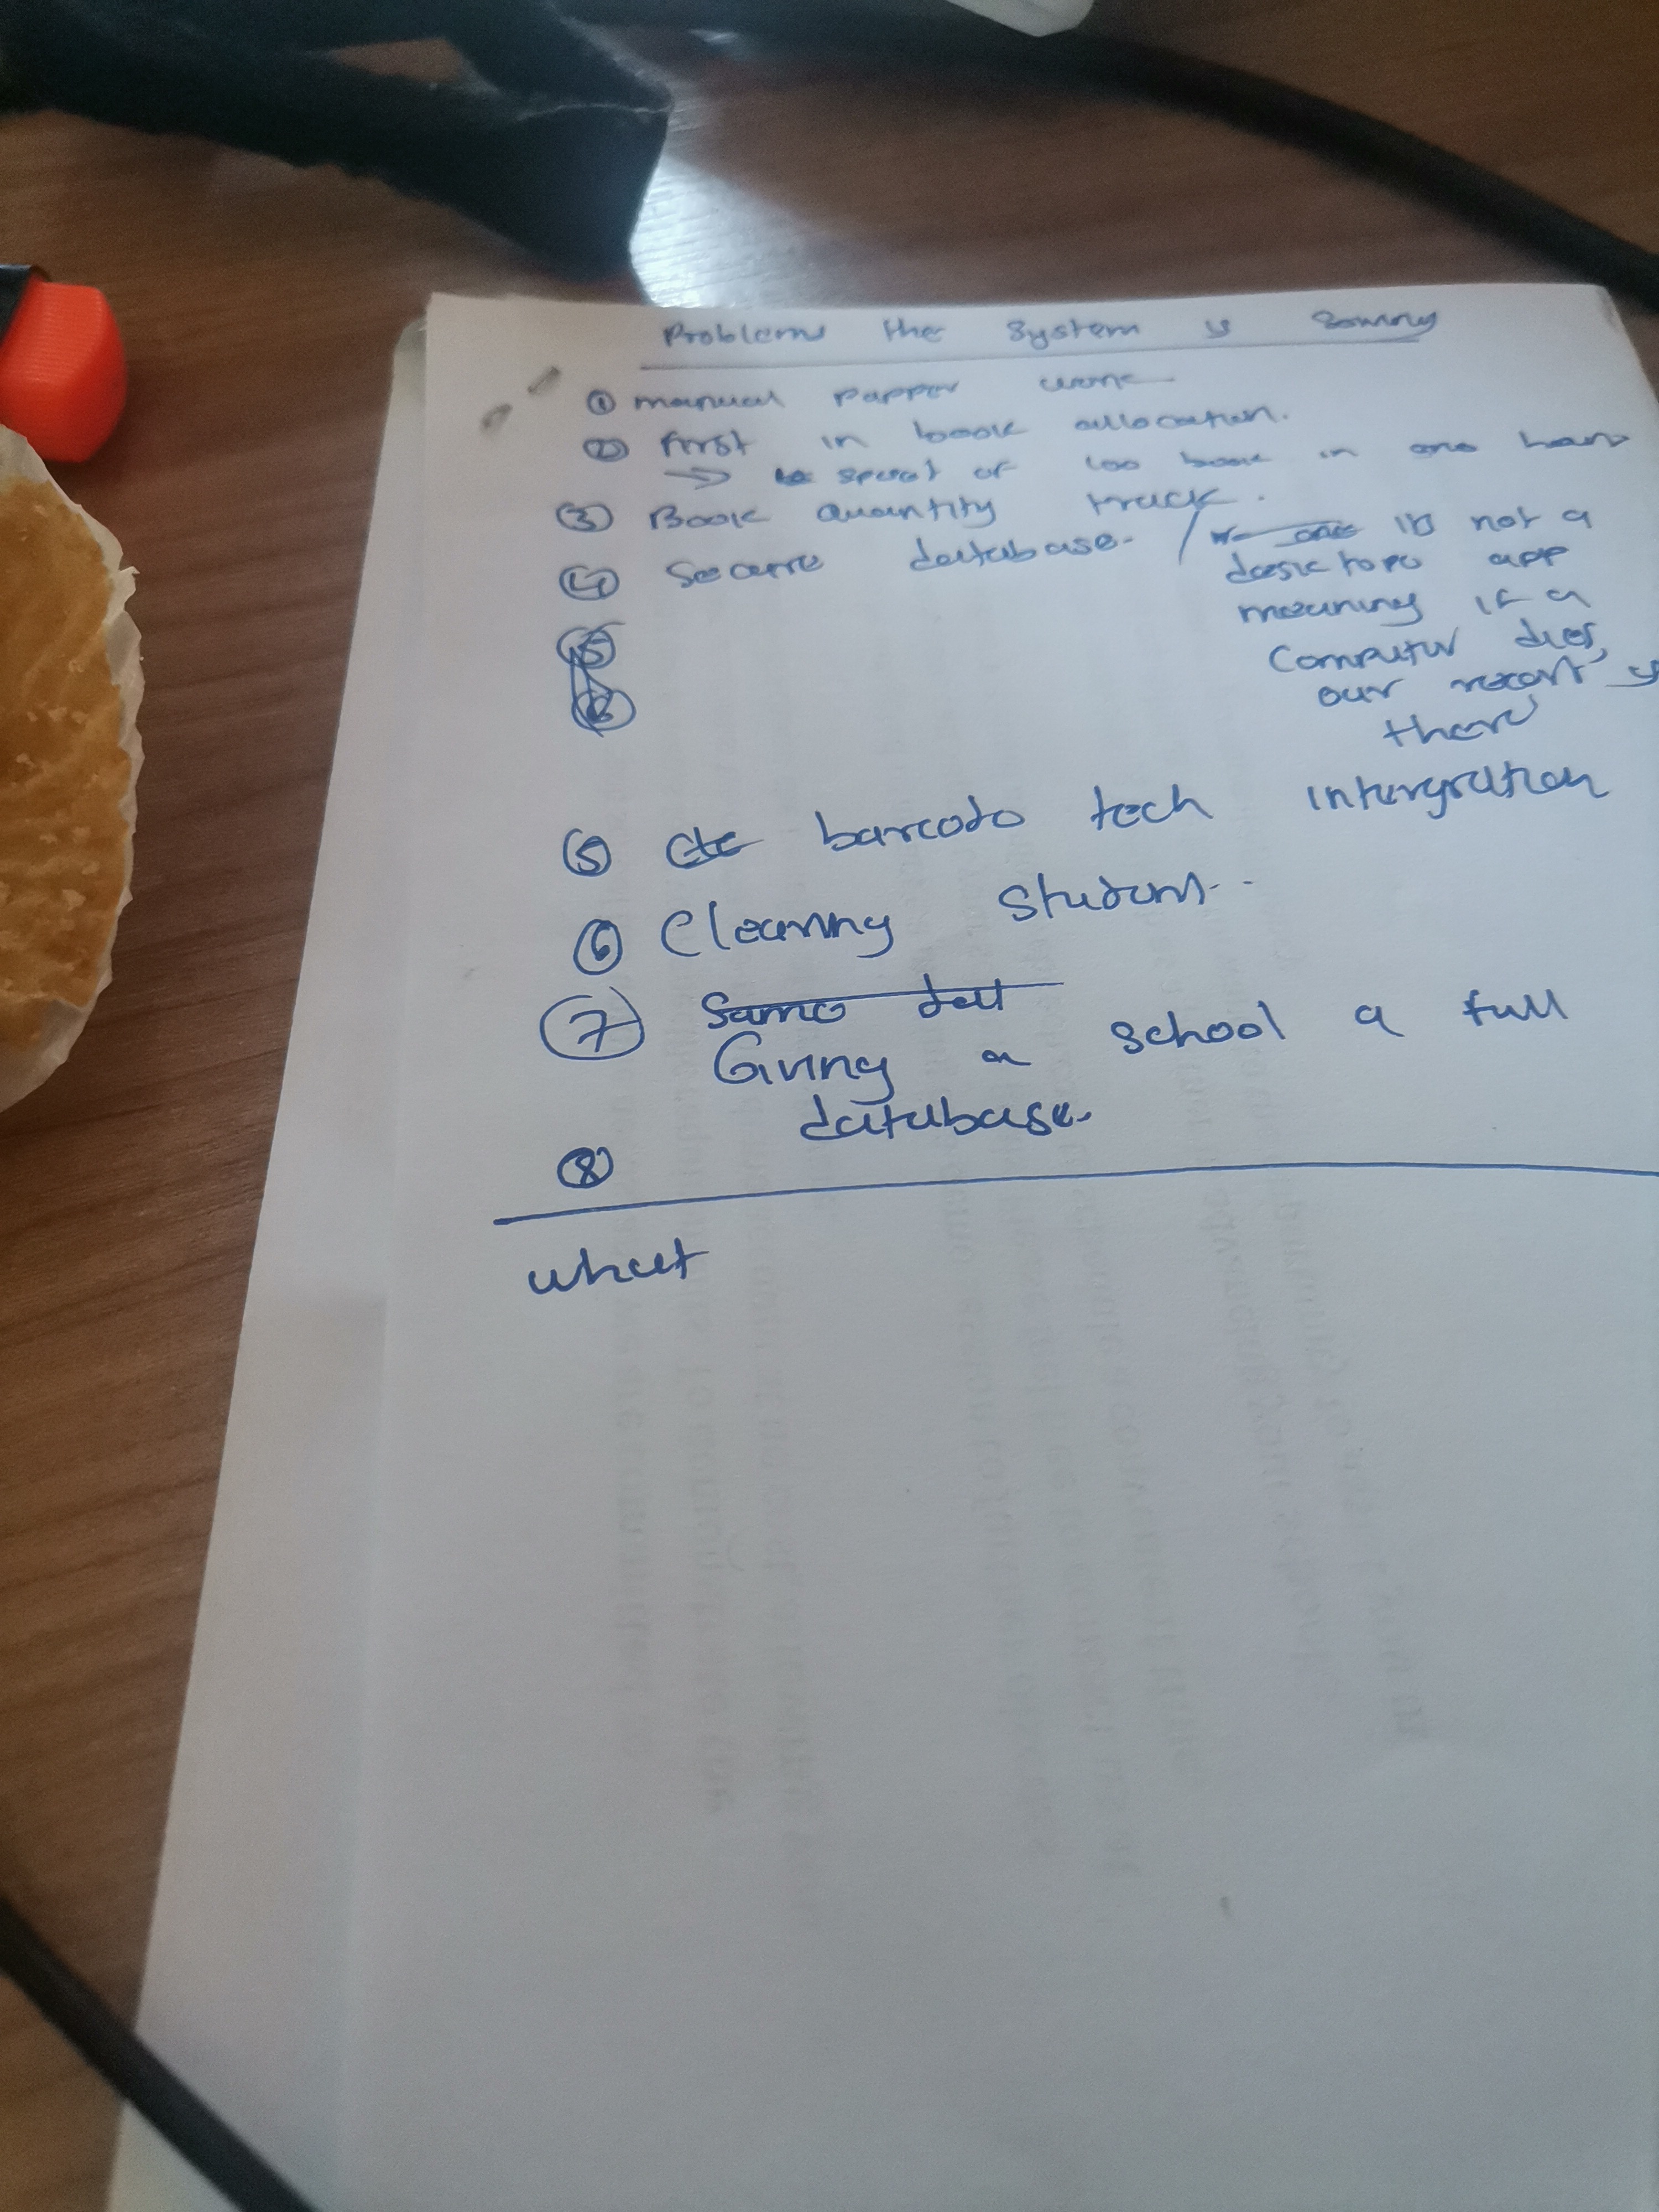 Problems the System is Solving
① manual papper work
② First in book allocation.
→ speed of 100 book in one hour
③ Book quantity track.
④ Secure database. / its not a
desktop app
meaning if a
Computer dies,
our record is
there
⑤ barcode tech intergration
⑥ Clearing Students..
⑦ Same dat
Giving a school a full
database.
⑧
what